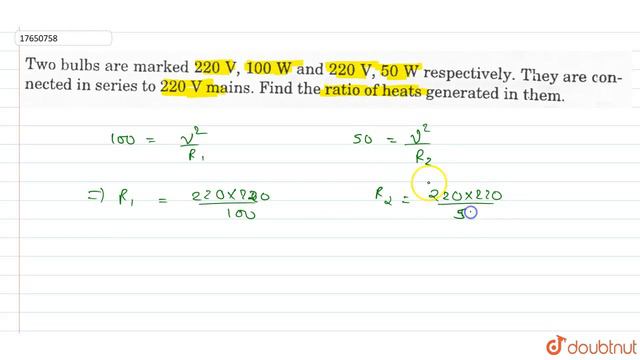 17650758
Two bulbs are marked 220 V, 100 W and 220 V, 50 W respectively. They are con-
nected in series to 220 V mains. Find the ratio of heats generated in them.
100 = V²/R₁ 50 = V²/R₂
=) R₁ = 220×220/100 R₂ = 220×220/50
doubtnut